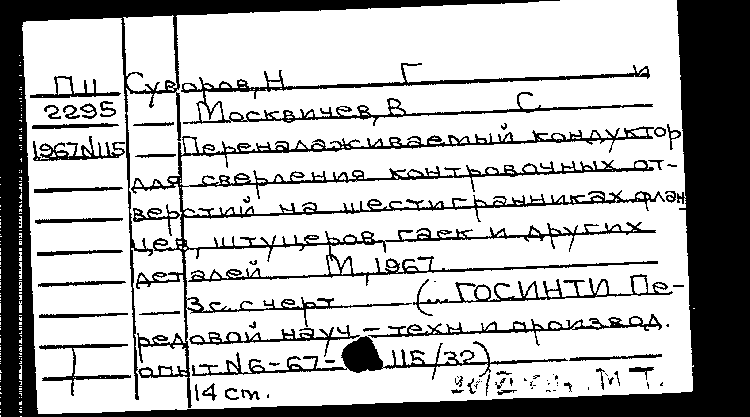 П 11 Суворов, Н Г и
2295 Москвичев, В С
1967N115 Переналаживаемый кондуктор
для сверления контровочных от-
верстий на шестигранниках флан
цев, штуцеров, гаек и других
деталей М, 1967
3с. с черт (... ГОСИНТИ Пе-
редовой науч-техн и производ.
опыт N 6-67- 115/32)
14 см. М Т.